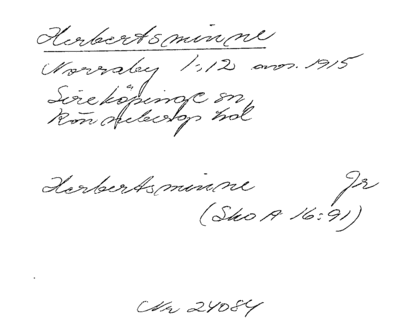 Herbertsminne
Norraby 1:12 avs. 1915
Sireköpinge sn,
Rönnebergs hd
Herbertsminne Jr
(Sko A 16:91)
Nr 24084